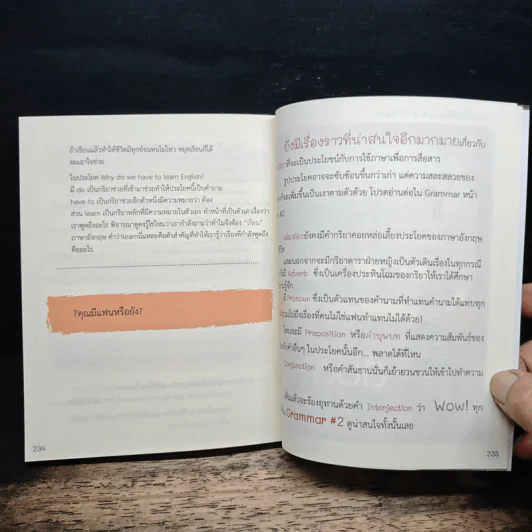 ถ้าเรียนแล้วทำให้ชีวิตมีทุกข์จนทนไม่ไหว หยุดเรียนก็ได้
ผมเอาใจช่วย
ในประโยค Why do we have to learn English?
มี do เป็นกริยาช่วยที่เข้ามาช่วยทำให้ประโยคนี้เป็นคำถาม
have to เป็นกริยาช่วยอีกตัวหนึ่งมีความหมายว่า ต้อง
ส่วน learn เป็นกริยาหลักที่มีความหมายในตัวเอง ทำหน้าที่เป็นตัวเล่าเรื่องว่า
เราพูดถึงอะไร พิจารณาดูคงรู้ใช่ไหมว่าเรากำลังถามว่าทำไมจึงต้อง "เรียน"
ภาษาอังกฤษ คำว่าlearnนี่แหละคือตัวสำคัญที่ทำให้เรารู้ว่าเรื่องที่กำลังพูดถึง
คืออะไร
7คุณมีแฟนหรือยัง?
234
ยังมีเรื่องราวที่น่าสนใจอีกมากมายเกี่ยวกับ
ที่จะเป็นประโยชน์กับการใช้ภาษาเพื่อการสื่อสาร
รูปประโยคอาจจะซับซ้อนขึ้นกว่าเก่า แต่ความสละสลวยของ
ก็จะเพิ่มขึ้นเป็นเงาตามตัวด้วย โปรดอ่านต่อใน Grammar หน้า
ยังคงมีคำกริยาคอยหล่อเลี้ยงประโยชน์ของภาษาอังกฤษ
และนอกจากจะมีกริยาดาราฝ่ายหญิงเป็นตัวเดินเรื่องในทุกกรณี
มี Adverb ซึ่งเป็นเครื่องประทินโฉมของกริยาให้เราได้ศึกษา
รู้จัก
มี Pronoun ซึ่งเป็นตัวแทนของคำนามที่ทำแทนคำนามได้แทบทุก
เรื่องที่คนไม่ใช่แฟนทำแทนไม่ได้ด้วย)
จะมี Preposition หรือคำบุพบท ที่แสดงความสัมพันธ์ของ
กับคำอื่นๆ ในประโยคนั้นอีก... พลาดได้ที่ไหน
Conjunction หรือคำสันธานนั่นก็เย้ายวนชวนให้เข้าไปทำความ
แล้วจะร้องอุทานด้วยคำ Interjection ว่า Wow! ทุก
Grammar #2 ดูน่าสนใจทั้งนั้นเลย
235